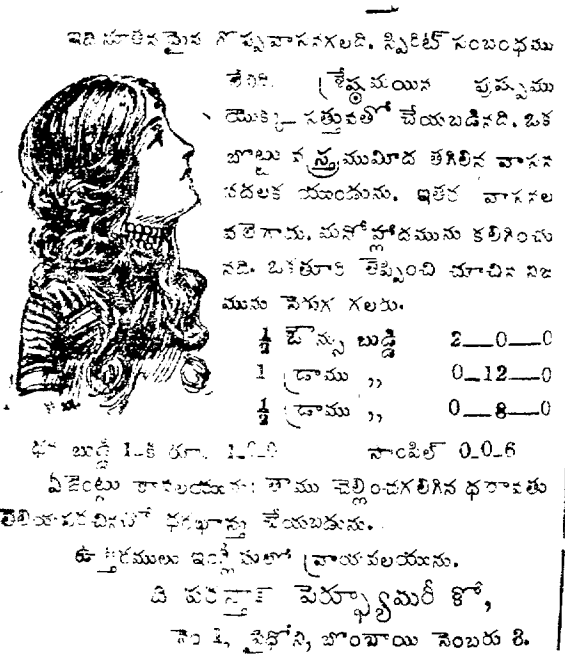 ఇది నూతనమైన గొప్పవాసనగలది. స్పిరిట్ సంబంధము
లేనిది శ్రేష్ఠమయిన పుష్పము
యొక్క సత్తువతో చేయబడినది. ఒక
బొట్టు వస్త్రముమీద తగిలిన వాసన
వదలక యుండును. ఇతర వాసనల
వలెగాదు. మనోహ్లాదమును కలిగించు
నది. ఒకతూరి తెప్పించి చూచిన నిజ
మును
½ ఔన్సు బుడ్డి 2—0—0
1 డ్రాము ,, 0—12—0
½ డ్రాము ,, 0—8—0
బుడ్డి 1-కి రూ. సాంపిల్ 0-0-6
ఏజెంట్లు కావలయును: తాము చెల్లించగలిగిన ధరావతు
తెలియపరచినచో దరఖాస్తు చేయబడును.
ఉత్తరములు ఇంగ్లీషులో వ్రాయవలయును.
ది పెర్ఫ్యూమరీ కో,
పైధోని, బొంబాయి నెంబరు 3.